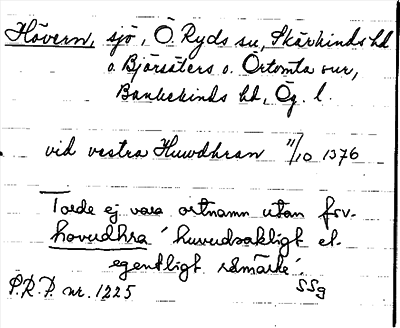 Hövern, sjö, Ö. Ryds sn, Skärkinds hd
o. Björsäters o. Örtomta snr,
Bankekinds hd, Ög. l.
vid vestra Huwdhran 11/10 1376
Torde ej vara ortnamn utan fsv.
hovudhra 'huvudsakligt el.
egentligt råmärke'.
SSg
P.R.P. nr. 1225